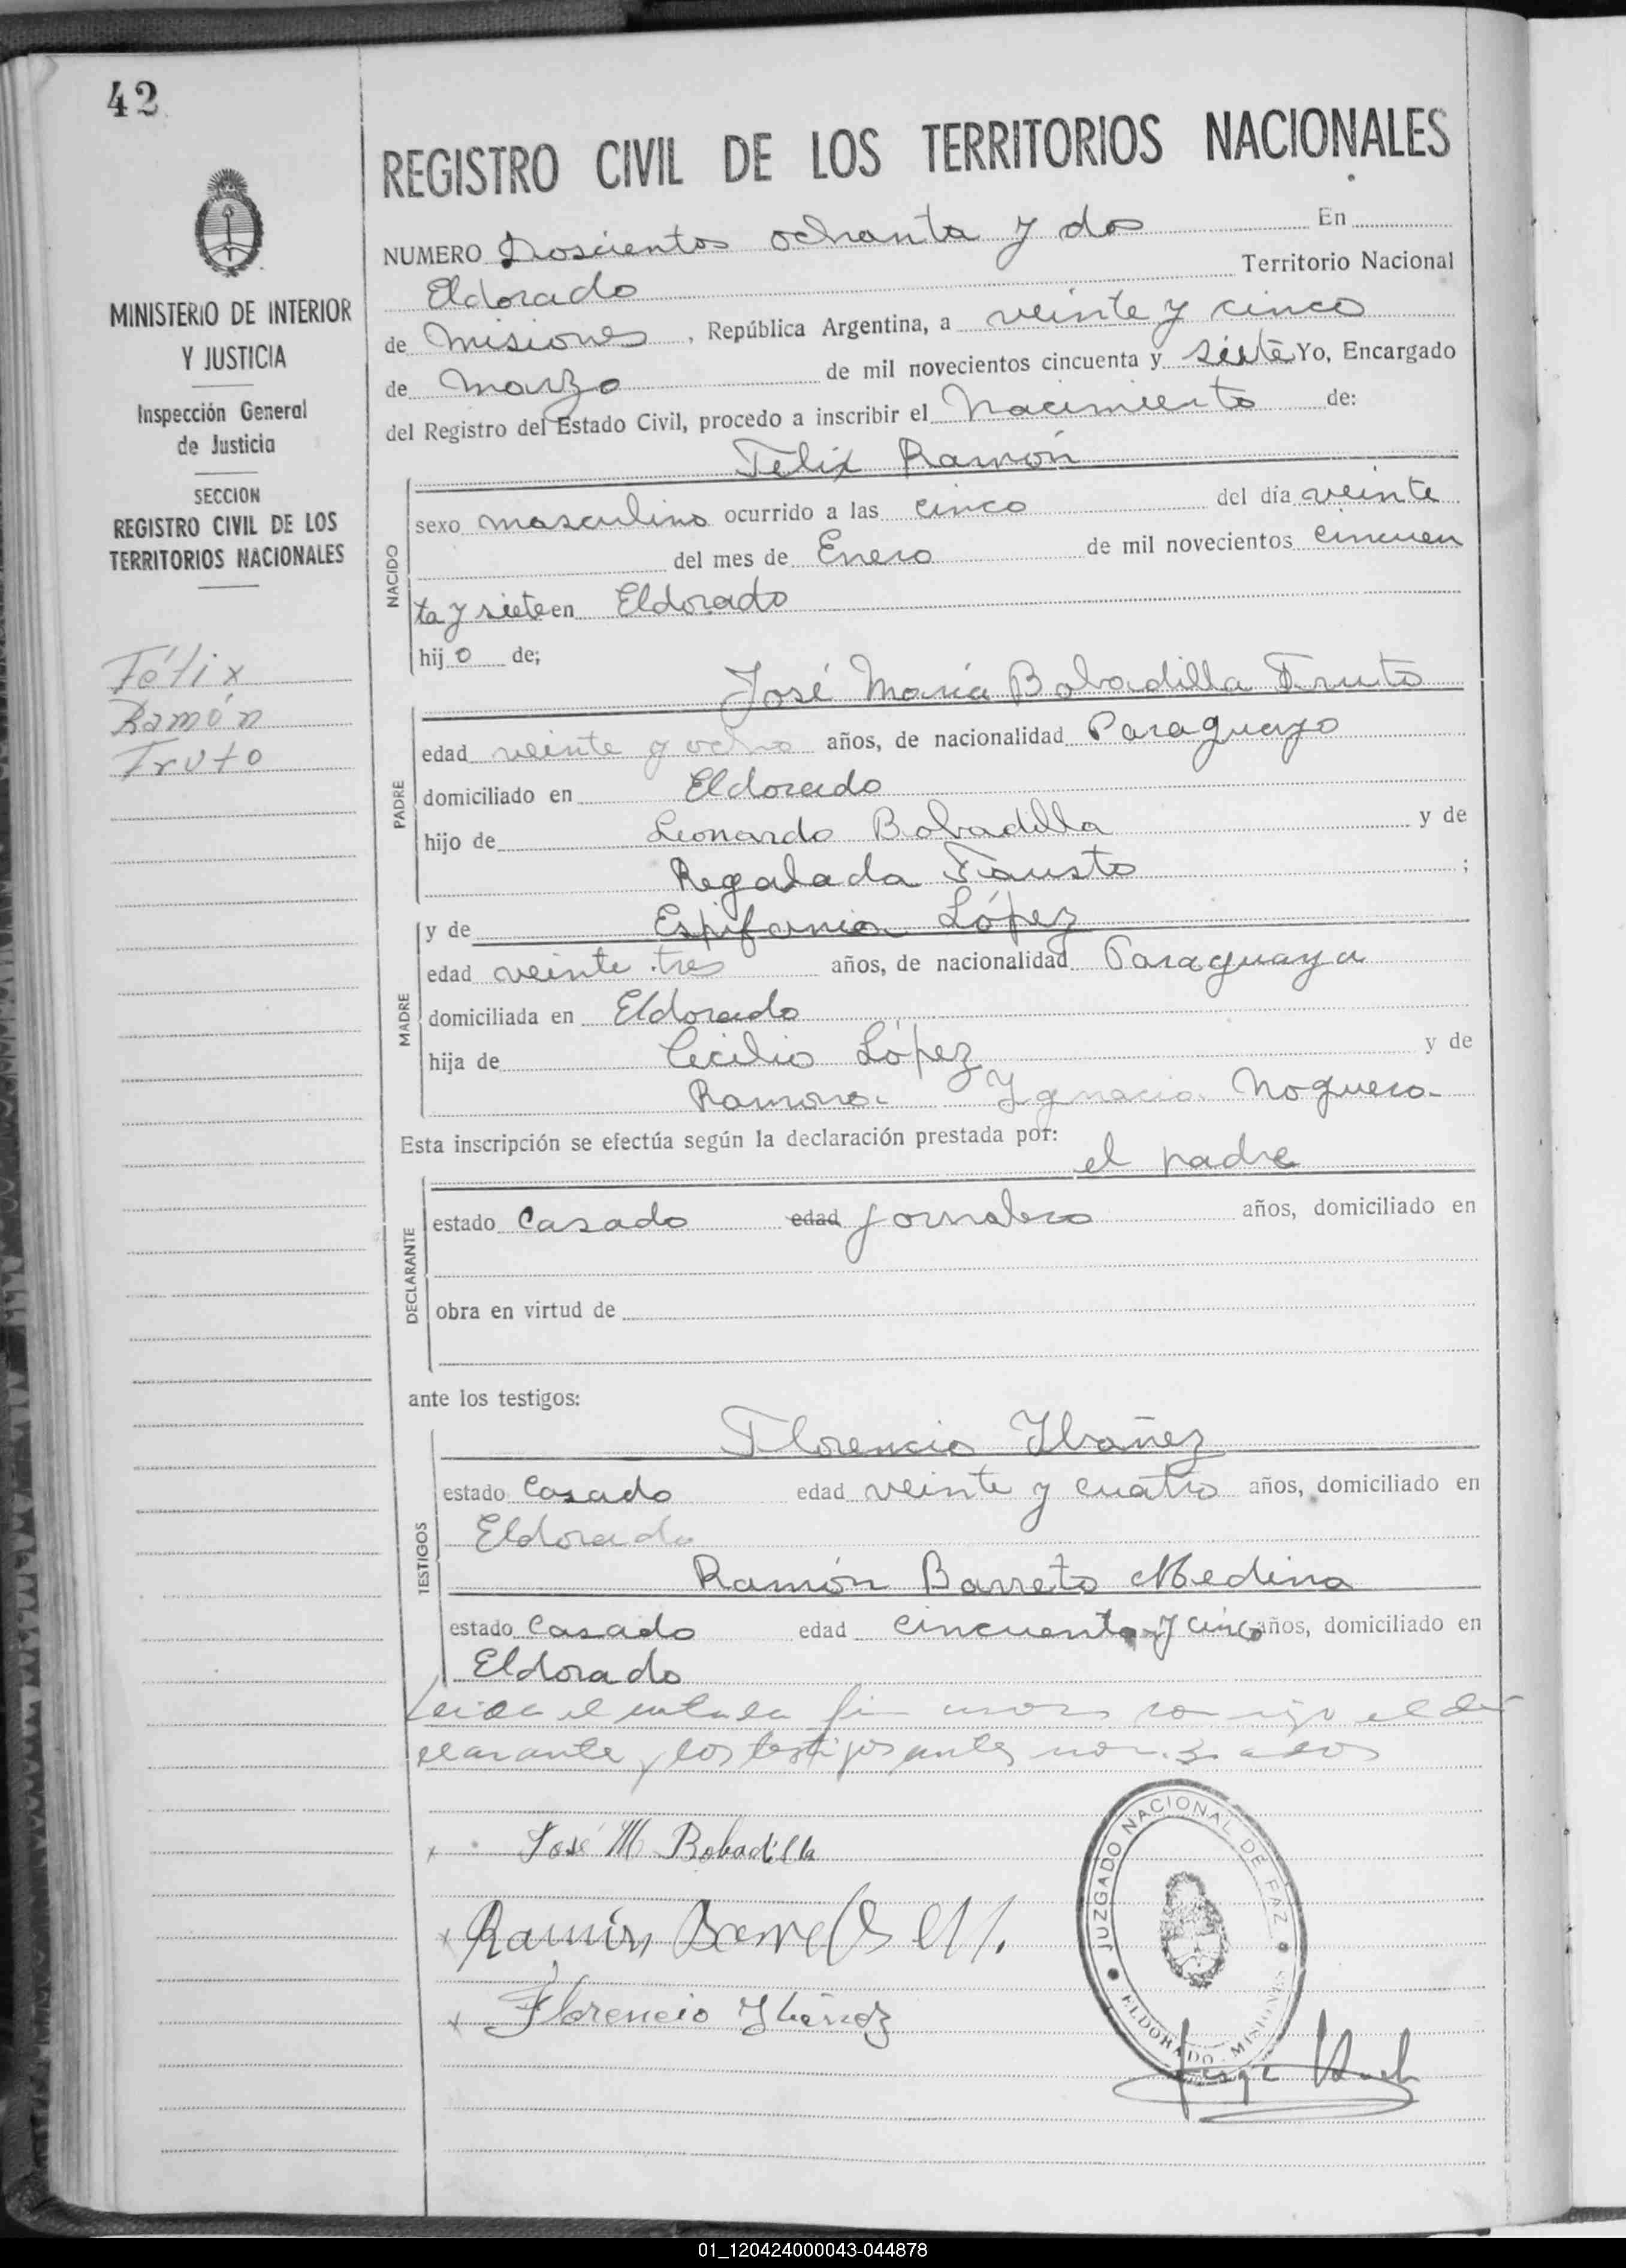 42
REGISTRO CIVIL DE LOS TERRITORIOS NACIONALES
NUMERO Doscientos ochenta y dos En
Eldorado Territorio Nacional
de Misiones, República Argentina, a veinte y cinco
de marzo de mil novecientos cincuenta y siete Yo, Encargado
del Registro del Estado Civil, procedo a inscribir el Nacimiento de:
Felix Ramón
MINISTERIO DE INTERIOR
Y JUSTICIA
Inspección General
de Justicia
SECCION
REGISTRO CIVIL DE LOS
TERRITORIOS NACIONALES
Félix
Ramón
Fruto
NACIDO
sexo masculino ocurrido a las cinco del día veinte
del mes de Enero de mil novecientos cincuen
ta y siete en Eldorado
hij o de;
José María Bobadilla Fruto
PADRE
edad veinte y ocho años, de nacionalidad Paraguayo
domiciliado en Eldorado
hijo de Leonardo Bobadilla y de
Regalada Fausto ;
MADRE
y de Espifania López
edad veinte tres años, de nacionalidad Paraguaya
domiciliada en Eldorado
hija de Cecilio López y de
Ramona Ygnacia Noguera
Esta inscripción se efectúa según la declaración prestada por:
el padre
DECLARANTE
estado Casado edad jornalero años, domiciliado en
obra en virtud de
ante los testigos:
TESTIGOS
Florencio Ibañez
estado Casado edad veinte y cuatro años, domiciliado en
Eldorado
Ramón Barreto Medina
estado Casado edad cincuenta y cinco años, domiciliado en
Eldorado
Leida el acta la firman conmigo el de
clarante y los testigos antes nombrados
José M Bobadilla
Ramón Barreto M.
Florencio Ybañez
JUZGADO NACIONAL DE PAZ
ELDORADO - MISIONES
01_120424000043-044878